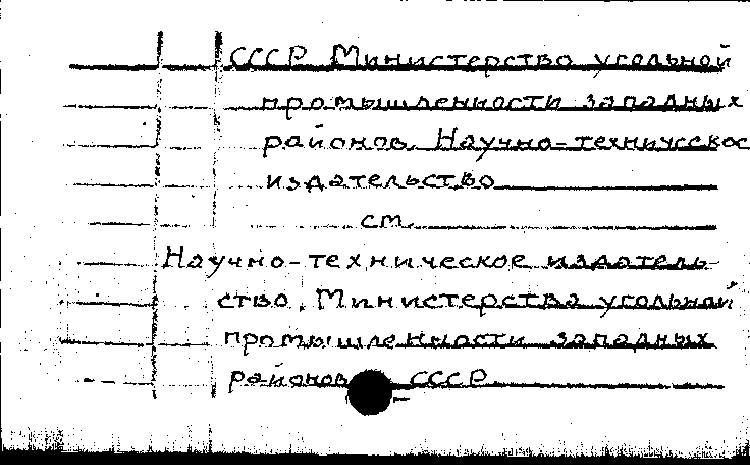 СССР Министерство угольной
промышленности западных
районов. Научно-техническое
издательство
см.
Научно-техническое издатель-
ство. Министерства угольной
промышленности западных
районов СССР.